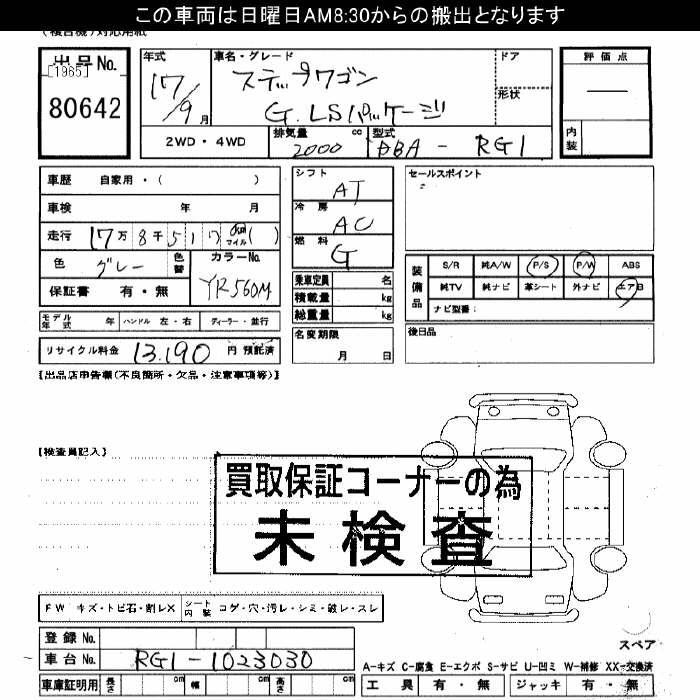 この車両は日曜日AM8:30からの搬出となります
(複合機)対応用紙
出品No.
[1965]
80642
年式
17/9月
車名・グレード
ステップワゴン
G.LSパッケージ
ドア
形状
評価点
内装
2WD・4WD
排気量 2000 cc
型式 DBA-RG1
車歴 自家用・( )
車検 年 月
走行 17万8千517 km マイル ( )
色 グレー 色替
カラーNo. YR560M
保証書 有・無
モデル年式 年 ハンドル 左・右 ディーラー・並行
リサイクル料金 13,190 円 預託済
シフト AT
冷房 AC
燃料 G
乗車定員 名
積載量 kg
総重量 kg
名変期限 月 日
セールスポイント
装備品
S/R 純A/W P/S P/W ABS
純TV 純ナビ 革シート 外ナビ エアB
ナビ型番:
後日品
【出品店申告欄(不良箇所・欠品・注意事項等)】
【検査員記入】
買取保証コーナーの為
未検査
FW キズ・トビ石・割レX シート内装 コゲ・穴・汚レ・シミ・破レ・スレ
登録No.
車台No. RG1-1023030
車庫証明用 長さ cm 幅 cm 高さ cm
スペア
A-キズ C-腐食 E-エクボ S-サビ U-凹ミ W-補修 XX-交換済
工具 有・無 ジャッキ 有・無